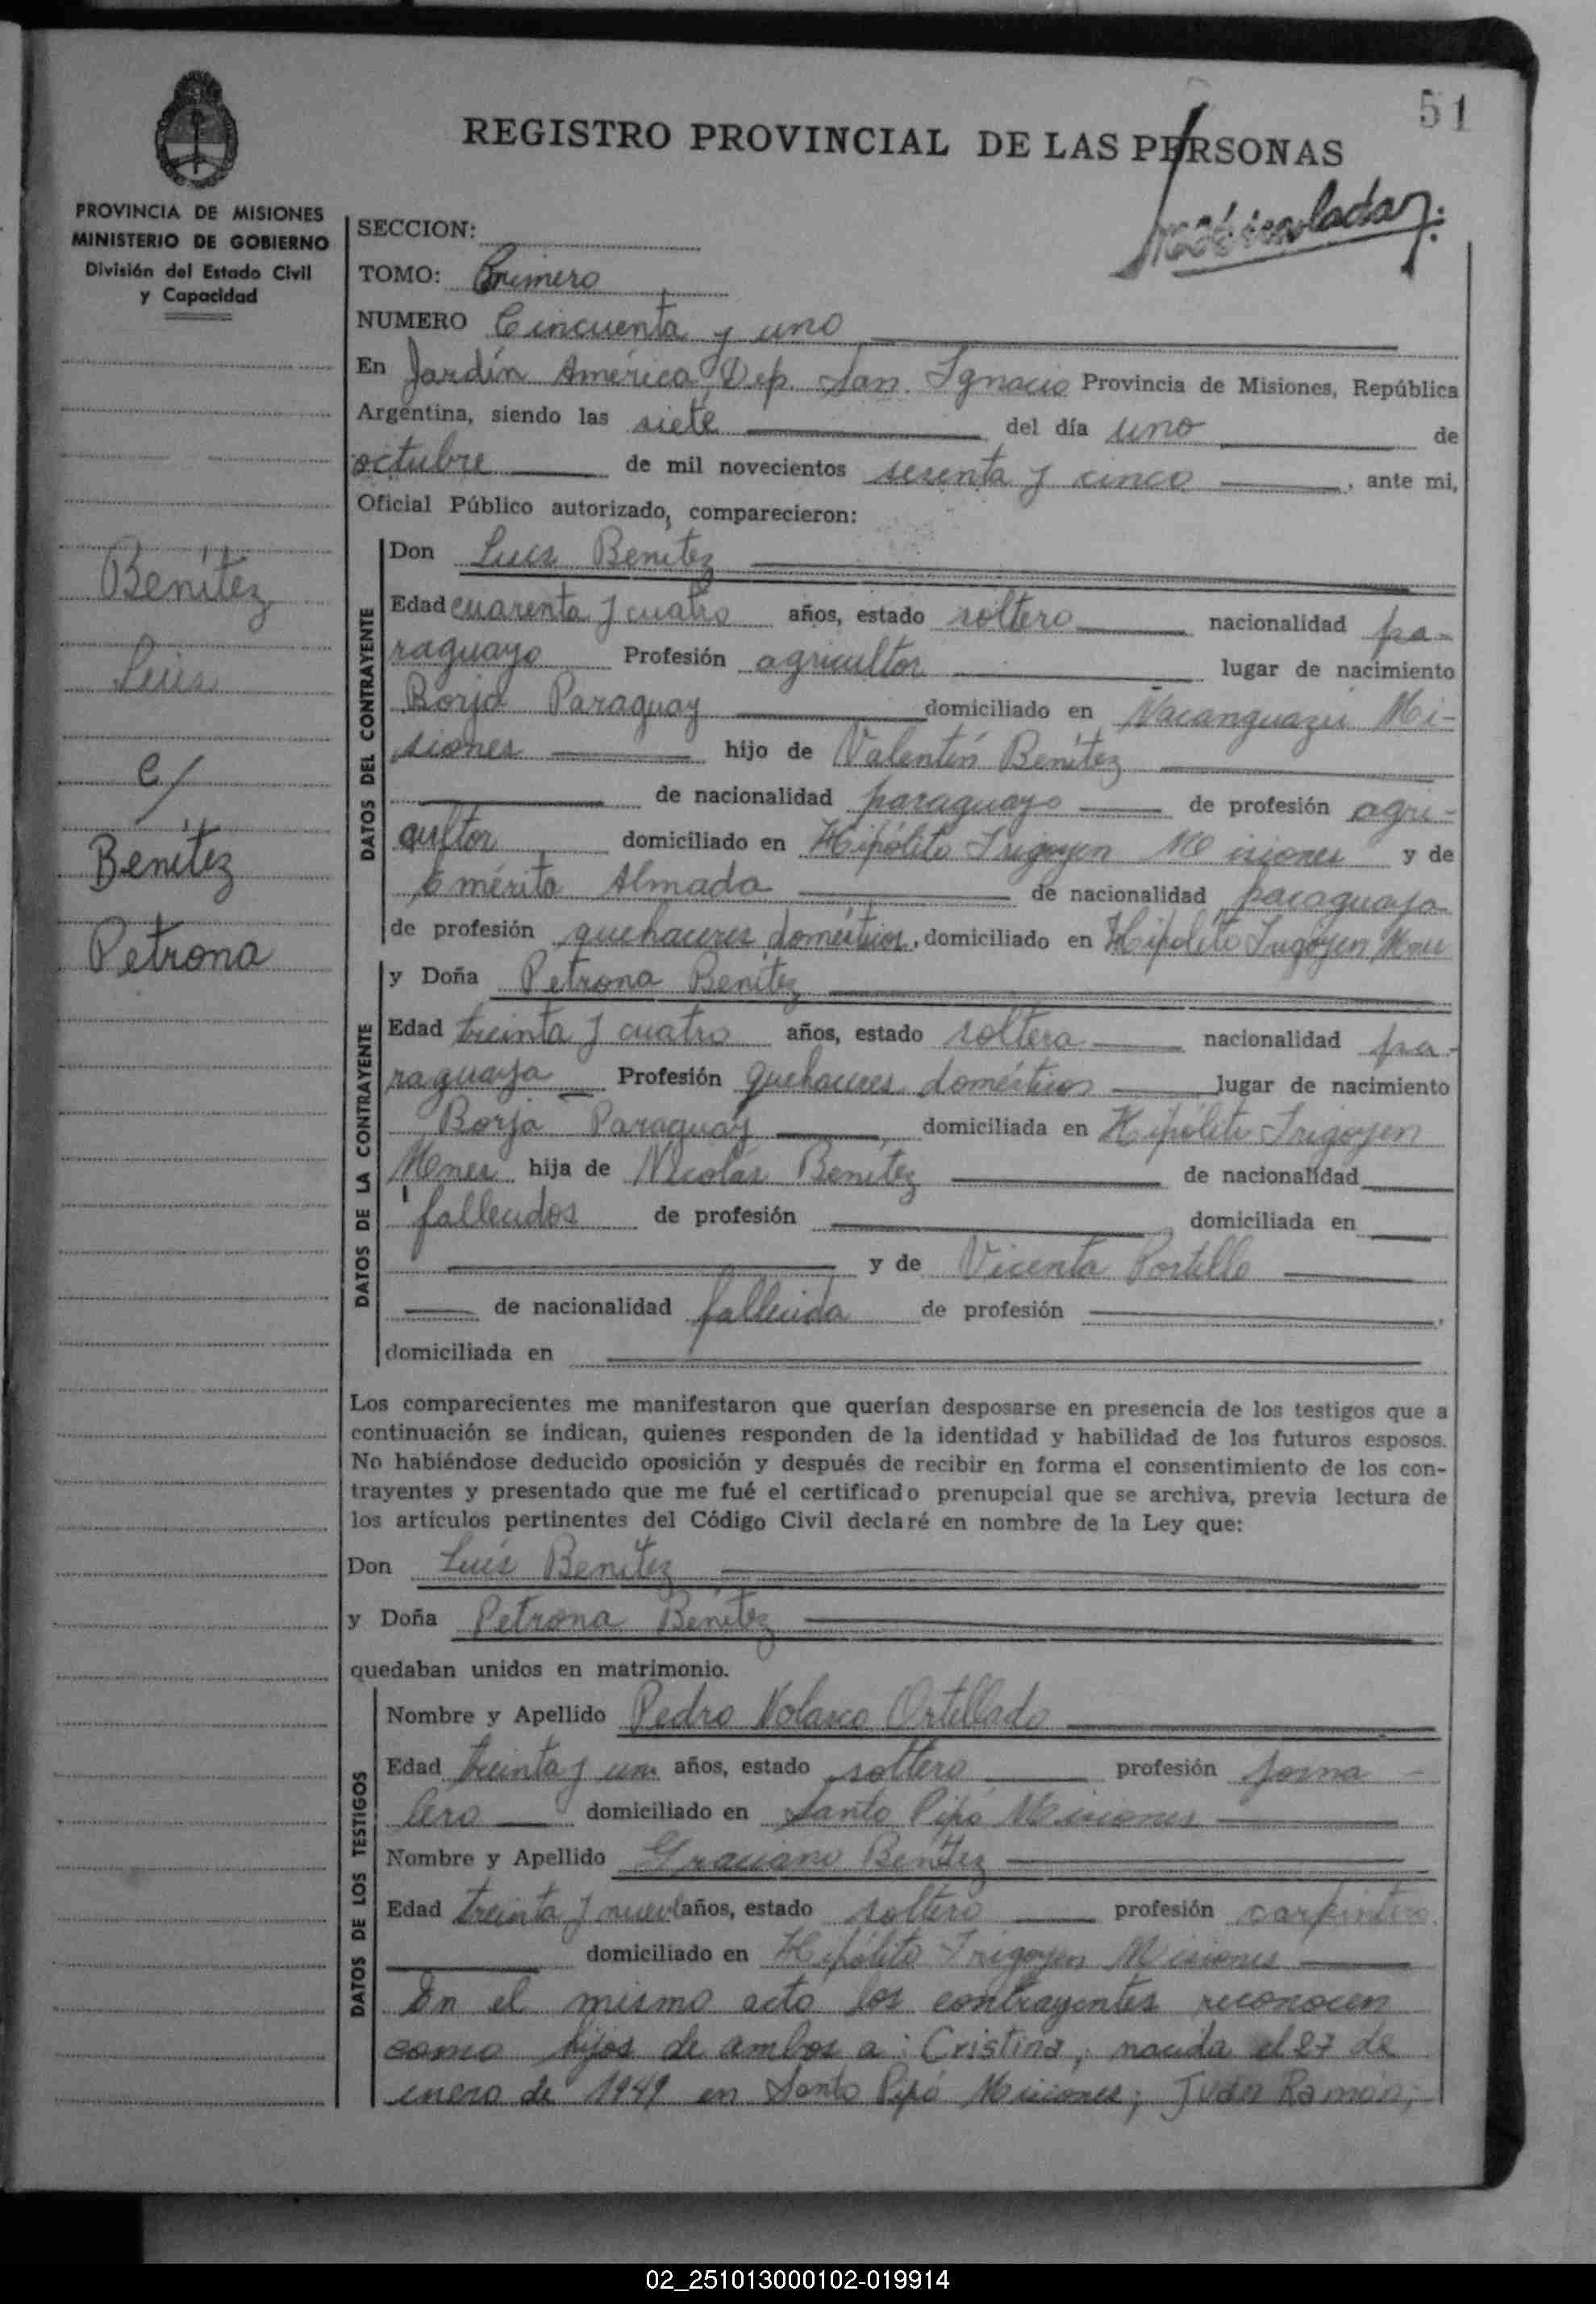 51
REGISTRO PROVINCIAL DE LAS PERSONAS
PROVINCIA DE MISIONES
MINISTERIO DE GOBIERNO
División del Estado Civil
y Capacidad
Benítez
Luis
c/
Benítez
Petrona
SECCION:
TOMO: Primero
NUMERO Cincuenta y uno
En Jardín América Dep. San Ignacio Provincia de Misiones, República
Argentina, siendo las siete del día uno de
octubre de mil novecientos sesenta y cinco, ante mi,
Oficial Público autorizado, comparecieron:
DATOS DEL CONTRAYENTE
Don Luis Benítez
Edad cuarenta y cuatro años, estado soltero nacionalidad pa-
raguayo Profesión agricultor lugar de nacimiento
Borja Paraguay domiciliado en Ñacanguazú Mi-
siones hijo de Valentín Benítez
de nacionalidad paraguayo de profesión agri-
cultor domiciliado en Hipólito Irigoyen Misiones y de
Emérita Almada de nacionalidad paraguaya
de profesión quehaceres domésticos, domiciliado en Hipólito Irigoyen Mnes
DATOS DE LA CONTRAYENTE
y Doña Petrona Benítez
Edad treinta y cuatro años, estado soltera nacionalidad pa-
raguaya Profesión quehaceres domésticos lugar de nacimiento
Borja Paraguay, domiciliada en Hipólito Irigoyen
Mnes hija de Nicolás Benítez de nacionalidad
fallecidos de profesión domiciliada en
y de Vicenta Portillo
de nacionalidad fallecida de profesión
domiciliada en
Los comparecientes me manifestaron que querían desposarse en presencia de los testigos que a
continuación se indican, quienes responden de la identidad y habilidad de los futuros esposos.
No habiéndose deducido oposición y después de recibir en forma el consentimiento de los con-
trayentes y presentado que me fué el certificado prenupcial que se archiva, previa lectura de
los artículos pertinentes del Código Civil declaré en nombre de la Ley que:
Don Luis Benítez
y Doña Petrona Benítez
quedaban unidos en matrimonio.
DATOS DE LOS TESTIGOS
Nombre y Apellido Pedro Nolasco Ortellado
Edad treinta y un años, estado soltero profesión jorna-
lero domiciliado en Santo Pipó Misiones
Nombre y Apellido Graciano Benítez
Edad treinta y nueve años, estado soltero profesión carpintero
domiciliado en Hipólito Irigoyen Misiones
En el mismo acto los contrayentes reconocen
como hijos de ambos a: Cristina, nacida el 27 de
enero de 1949 en Santo Pipó Misiones; Juan Ramón;
02_251013000102-019914